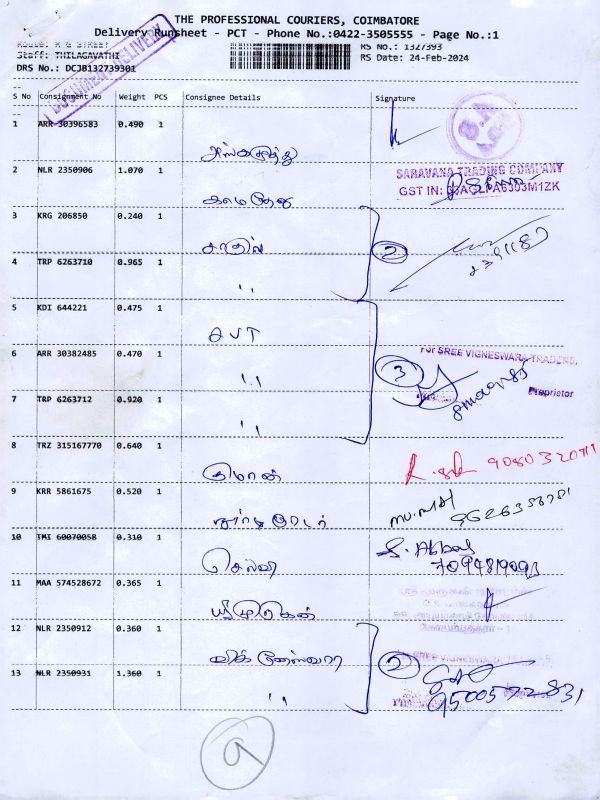 THE PROFESSIONAL COURIERS, COIMBATORE
Delivery Runsheet - PCT - Phone No.:0422-3505555 - Page No.:1
Route: R G STREET
Staff: THILAGAVATHI
RS No.: 1327393
DRS No.: DCJB132739301
RS Date: 24-Feb-2024
DOCUMENT DELIVERY
S No Consignment No Weight PCS Consignee Details Signature
1 ARR 30396583 0.490 1
2 NLR 2350906 1.070 1 காமதேனு
SARAVANA TRADING COMPANY
GST IN:
3 KRG 206850 0.240 1
2
4 TRP 6263710 0.965 1 ,,
5 KDI 644221 0.475 1 QVT
6 ARR 30382485 0.470 1 ,,
For SREE VIGNESWARA TRADERS,
3
Proprietor
7 TRP 6263712 0.920 1 ,,
8 TRZ 315167770 0.640 1
9 KRR 5861675 0.520 1
10 TMI 60070058 0.310 1 செல்வா
S. Abbas
11 MAA 574528672 0.365 1
12 NLR 2350912 0.360 1 விக்னேஸ்வரா
2
13 NLR 2350931 1.360 1 ,,
9500572831
9